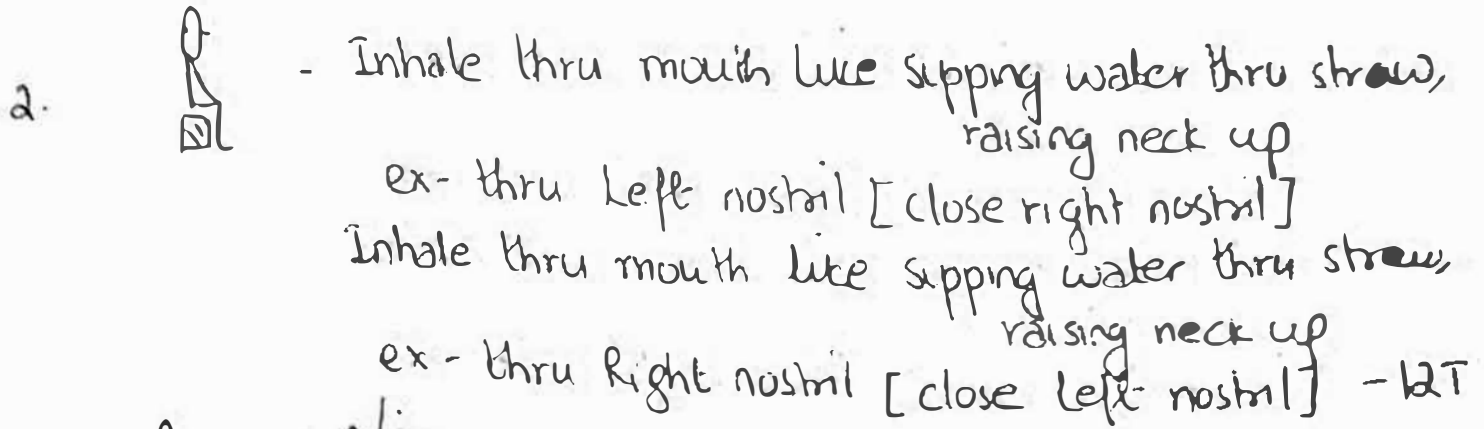 2. - Inhale thru mouth like sipping water thru straw,
raising neck up
ex- thru Left nostril [close right nostril]
Inhale thru mouth like sipping water thru straw,
raising neck up
ex- thru Right nostril [close Left nostril] - 12T